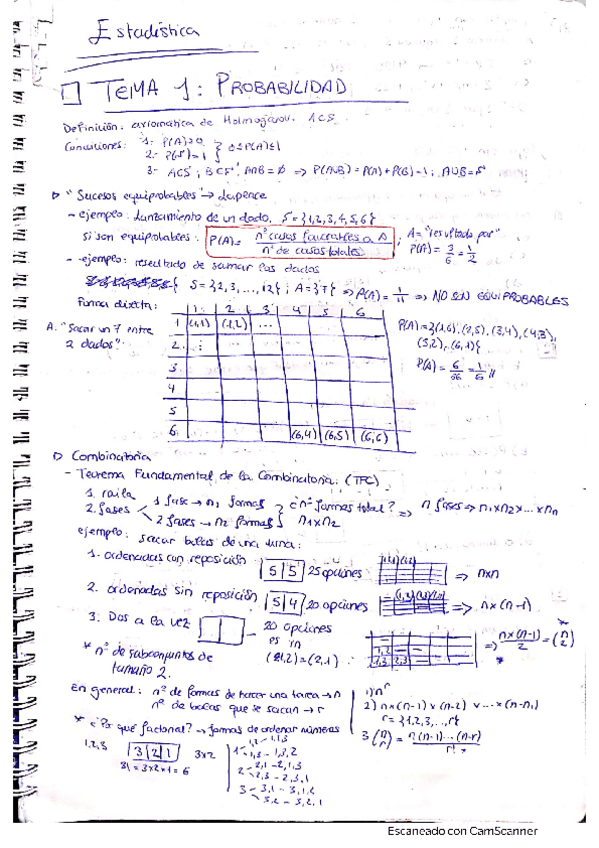 Estadística
TEMA 1: PROBABILIDAD
Definición: axiomática de Kolmogorov. ACS
Condiciones: 1- P(A)≥0
2- P(S)=1 } 0≤P(A)≤1
3- ACS; BCS; A∩B=Ø => P(AUB)=P(A)+P(B)=1; AUB=S
"Sucesos equiprobables" → Laplace
- ejemplo: Lanzamiento de un dado. S={1,2,3,4,5,6}
si son equiprobables: P(A)= nº casos favorables a A / nº de casos totales ; A="resultado par"
P(A)= 3/6 = 1/2
- ejemplo: resultado de sumar los dados
S={2,3,...,12}; A={7} => P(A)=1/11 => NO SON EQUIPROBABLES
Forma directa: 1 2 3 4 5 6
A. "Sacar un 7 entre 2 dados"
1 (1,1) (1,2) ...
2
3
4
5
6 (6,4) (6,5) (6,6)
P(A)={(1,6), (2,5), (3,4), (4,3),
(5,2), (6,1)}
P(A)= 6/36 = 1/6
Combinatoria
- Teorema Fundamental de la Combinatoria. (TFC)
1. 
2. fases
1 fase → n1 formas
2 fases → n2 formas
¿nº formas total? => n fases => n1xn2x...xnn
n1xn2
ejemplo: sacar bolas de una urna:
1. ordenadas con reposición 5 5 25 opciones => nxn
2. ordenadas sin reposición 5 4 20 opciones => nx(n-1)
3. Dos a la vez 20 opciones
(1,2)=(2,1)
=> nx(n-1)/2 = (n 2)
* nº de subconjuntos de
tamaño 2.
En general: nº de formas de hacer una tarea → n
nº de bolas que se sacan → r
1) n^r
2) nx(n-1)x(n-2)x...x(n-n1)
r={1,2,3,...,r}
3 (n r) = n(n-1)...(n-r) / r!
* ¿Por qué factorial? → formas de ordenar números
1,2,3 3 2 1 3x2
3! = 3x2x1 = 6
1 1,2 - 1,2,3
1,3 - 1,3,2
2 2,1 - 2,1,3
2,3 - 2,3,1
3 3,1 - 3,1,2
3,2 - 3,2,1
Escaneado con CamScanner